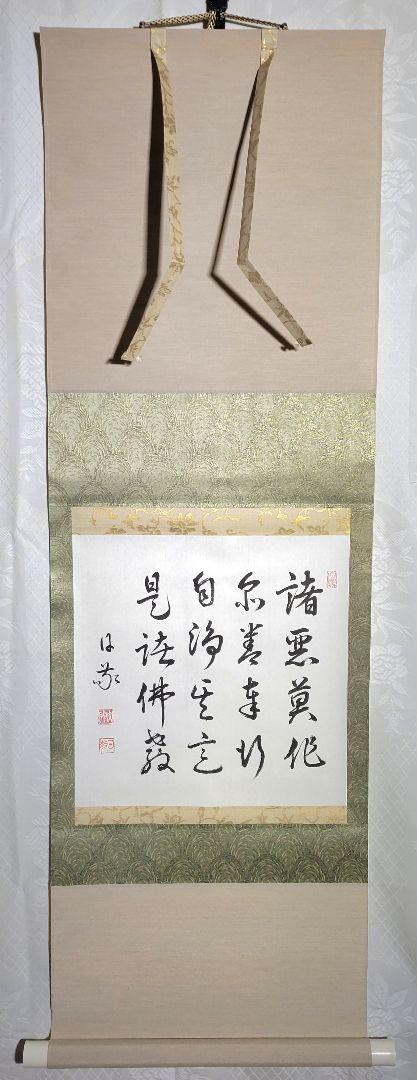 諸悪莫作
衆善奉行
自浄其意
是諸佛教
日敬